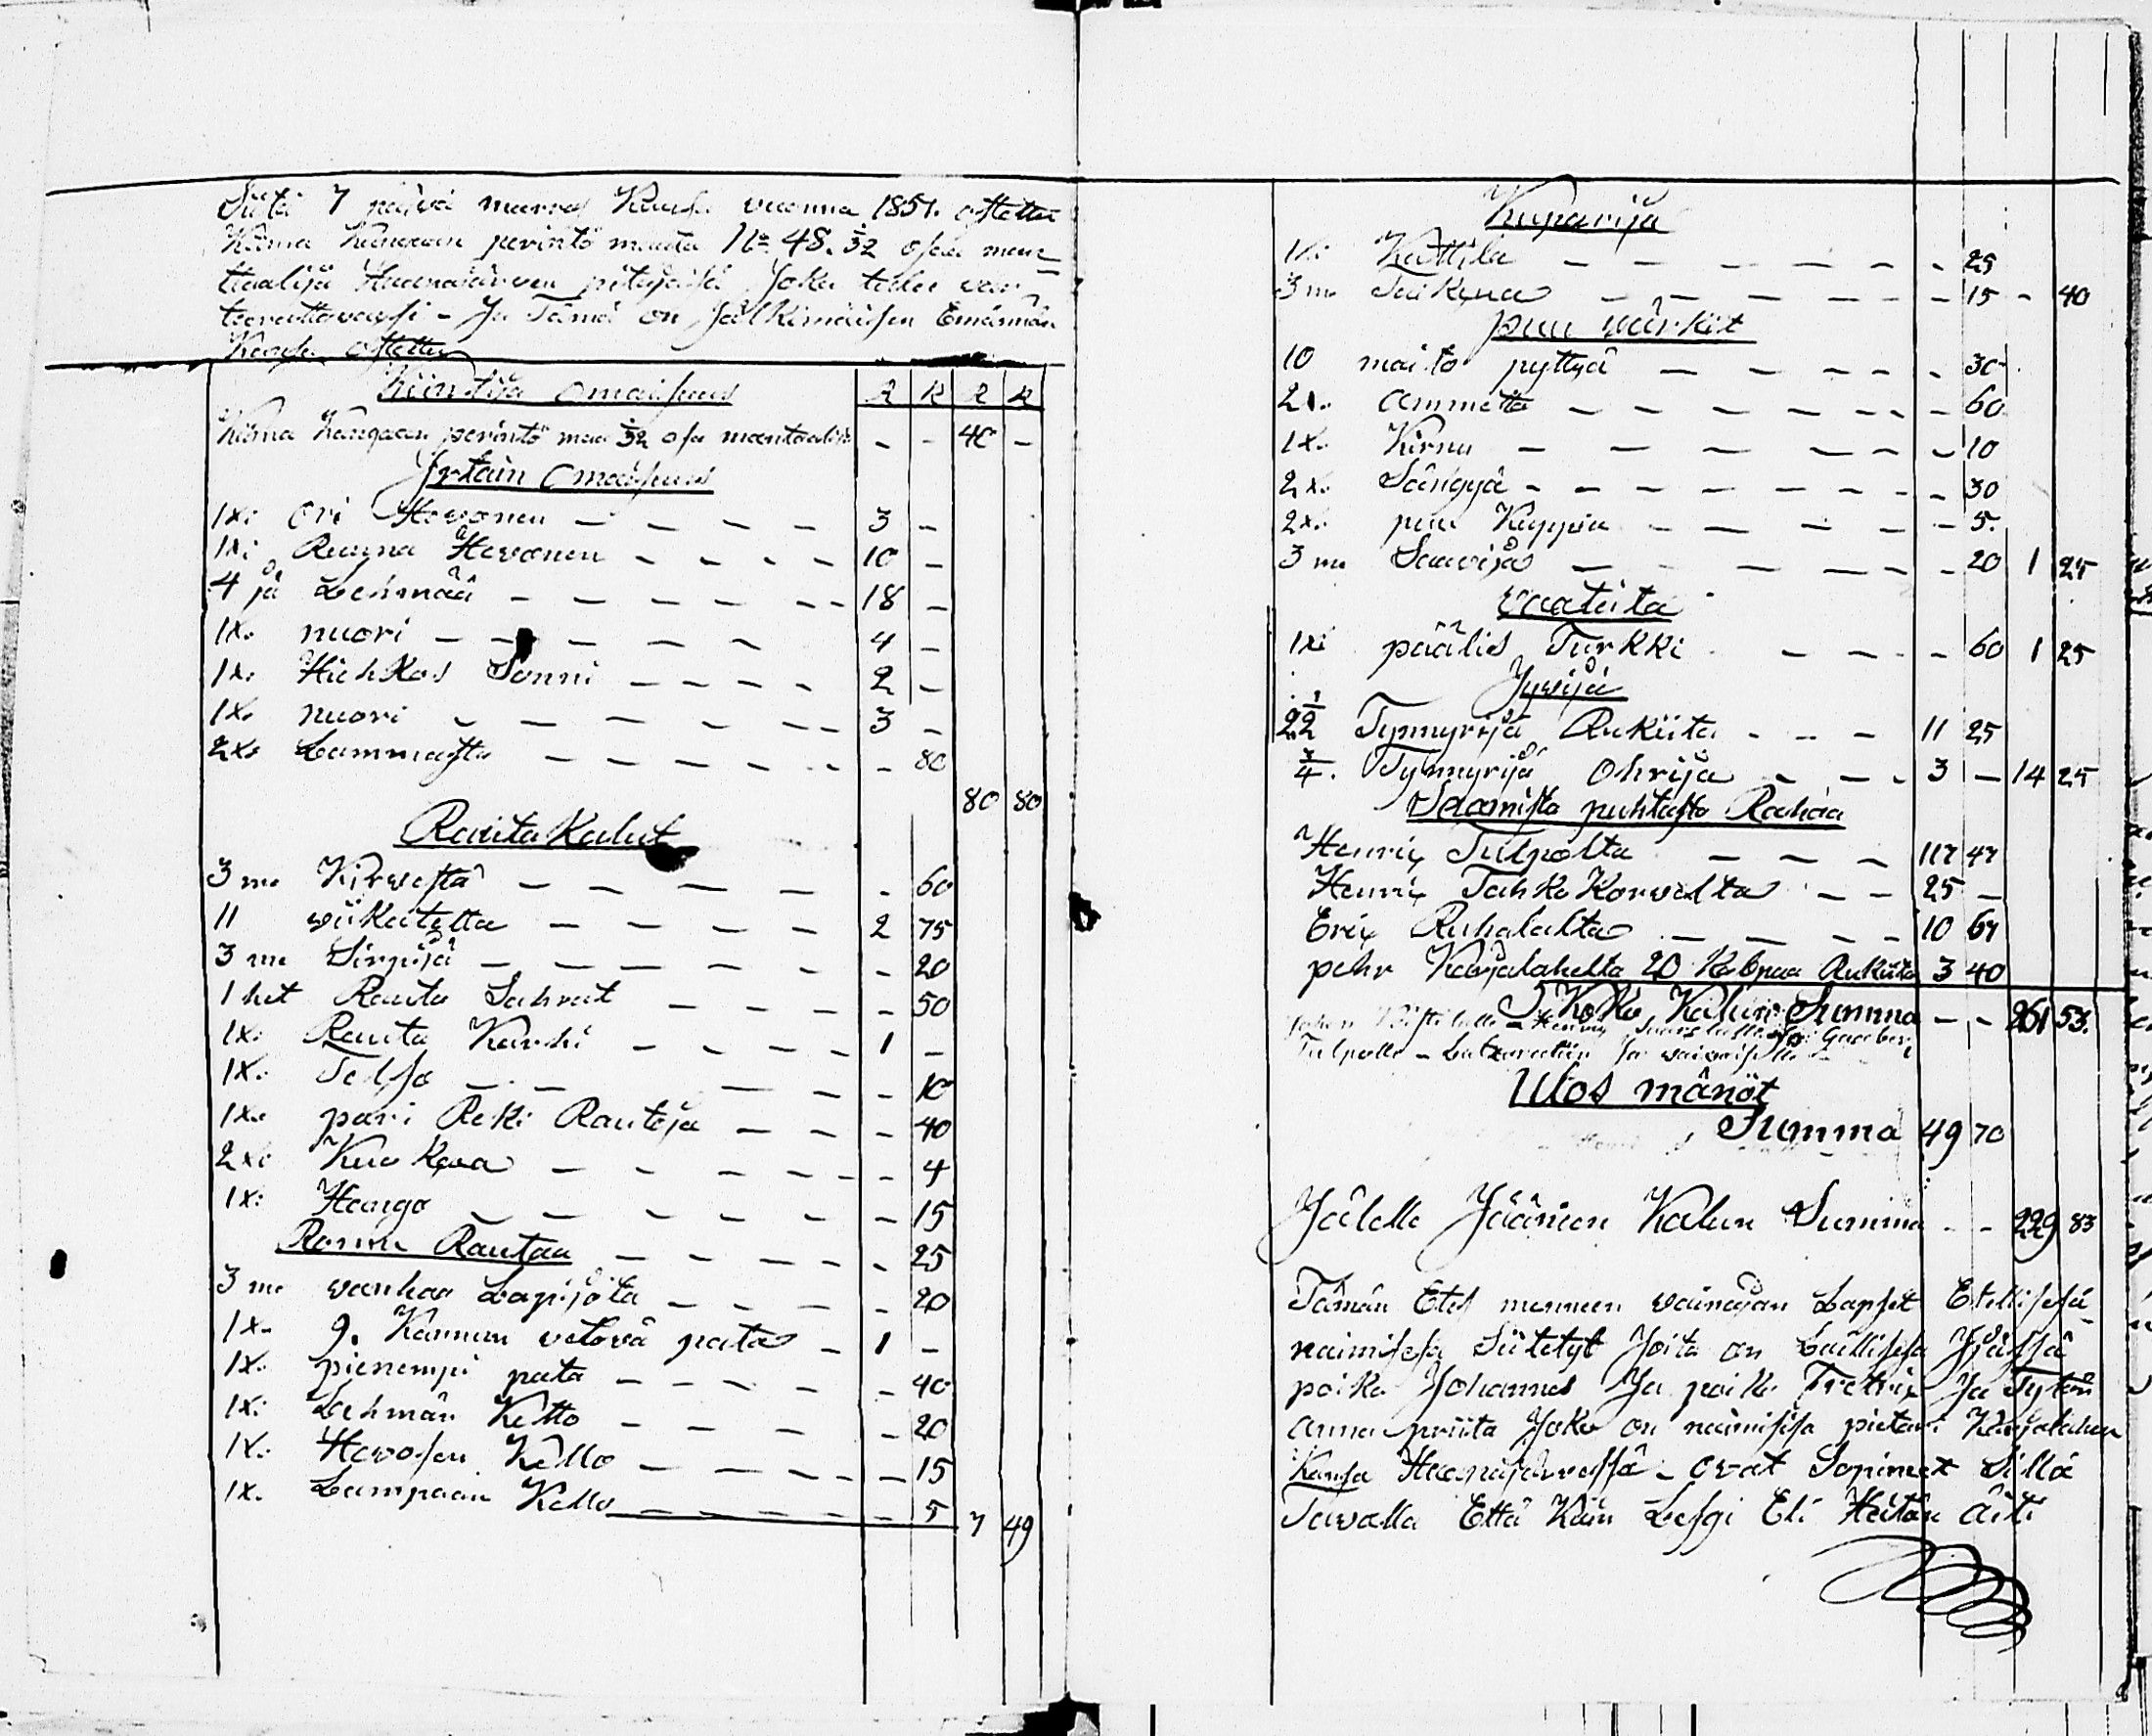 Siitä 7 päivä marras Kuusa vuonna 1851. ostettu
Kilma Kangaan perintö maata No 48. 1/32 osaa man
taalija Haapajärven pitäjäsä Joka tulee var
teerattavaksi - Ja Tämä on Jälkimäisen Emännän
Kansa ostettu
Kiintiä omaisuus R K R K
Kilma Kangaan perintö maa 1/32 osa mantaalia - - 40 -
Irtain omaisuus
1xi ori Hevonen - - - - 3 -
1xi Ruuna Hevonen - - - - 10 -
4 jä Lehmää - - - - - - 18 -
1x. nuori - - - - - - 4 -
1x. Hiehkos Sonni - - - - 2 -
1x. nuori - - - - - - 3 -
2x. Lammasta - - - - - - - 80
80 80
Rauta Kalut
3 me Kirvestä - - - - - - 60
11 viikatetta - - - - 2 75
3 me Sirpijä - - - - - - 20
1 het Rauta Sahrat - - - - 50
1x: Rauta Karhi - - - - 1 -
1x. Telso - - - - - 10
1x. pari Reki Rautoja - - - 40
2xi Kuokkaa - - - - - - 4
1x: Hango - - - - - - 15
Romu Rautaa - - - - - 25
3 me vanhaa Lapijota - - - - 20
1x. 9. Kannun vetävä pata - 1 -
1x. pienempi pata - - - - - 40
1x: Lehmän Kello - - - - 20
1x. Hevosen Kello - - - - - 15
1x. Lampaan Kello - - - - - 5 7 49
Kuparija
1xi Kattila - - - - - - - 25
3 me - - - - - - 15 - 40
puu värkit
10 maito pyttyä - - - - - 30
2x. ammetta - - - - - - - 60
1x. Kirnu - - - - - - 10
2x. Sängyä - - - - - - - 30
2x. puu Kuppia - - - - - 5.
3 me Saavija - - - - - - 20 1 25
vaateita
1xi päälis Turkki - - - 60 1 25
Jyvijä
2 1/2 Tynnyrijä Rukiita - - - 11 25
3/4. Tynnyrijä Ohrija - - - 3 - 14 25
Saamista puhtasta Rahaa
Henrix Tulpolta - - - 117 47
Henrix Tahko Korvelta - - 25 -
Erix Ruhalalta - - - - 10 67
pehr Karjalahelta 20 Kappaa Rukiita 3 40
Koko Kalun Summa - - 261 53.
Ulos mänöt
Summa 49 70
Jälelle Jäänien Kalun Summa - - 229 83
Tämän Etes menneen vainajan Lapset Etellisesä
naimisesa Siitetyt Joita on Laillisesa Ijäsä
poika Johannes Ja poika Fretrix Ja Tytär
Anna priita Joka on naimisisa pietari Karjalahen
Kansa Haapajärvessä - ovat Sopineet Sillä
Tavalla Että Kuin Leski Eli Heitän äiti